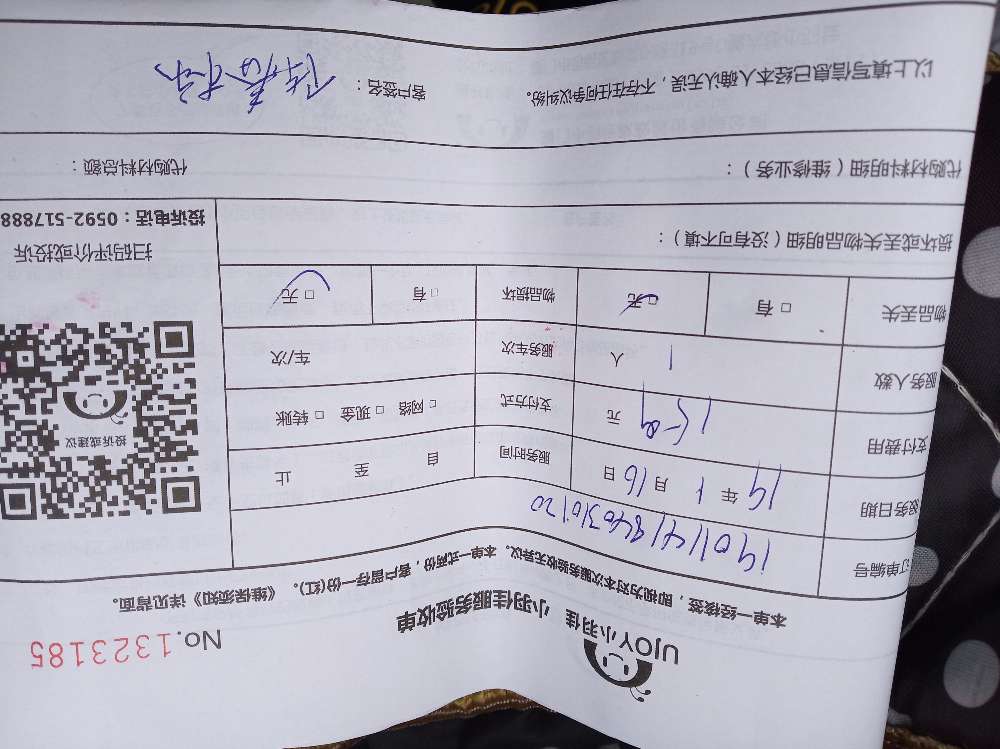 UJOY小羽佳 小羽佳服务验收单
No.1323185
本单一经接签，即视为对本次服务验收无异议。本单一式两份，客户留存一份(红)。《维保须知》详见背面。
订单编号 190114184031020
服务日期 19 年 1 月 16 日 服务时间 自 至 止
支付费用 159 元 支付方式 □ 网络 □ 现金 □ 转账
服务人数 1 人 服务车次 车/次
物品丢失 □ 有 □ 无 物品损坏 □ 有 □ 无
投诉或建议
扫码评价或投诉
投诉电话：0592-517888
损坏或丢失物品明细（没有可不填）：
代购材料明细（维修业务）： 代购材料总额：
以上填写信息已经本人确认无误，不存在任何争议纠纷。 客户签名：